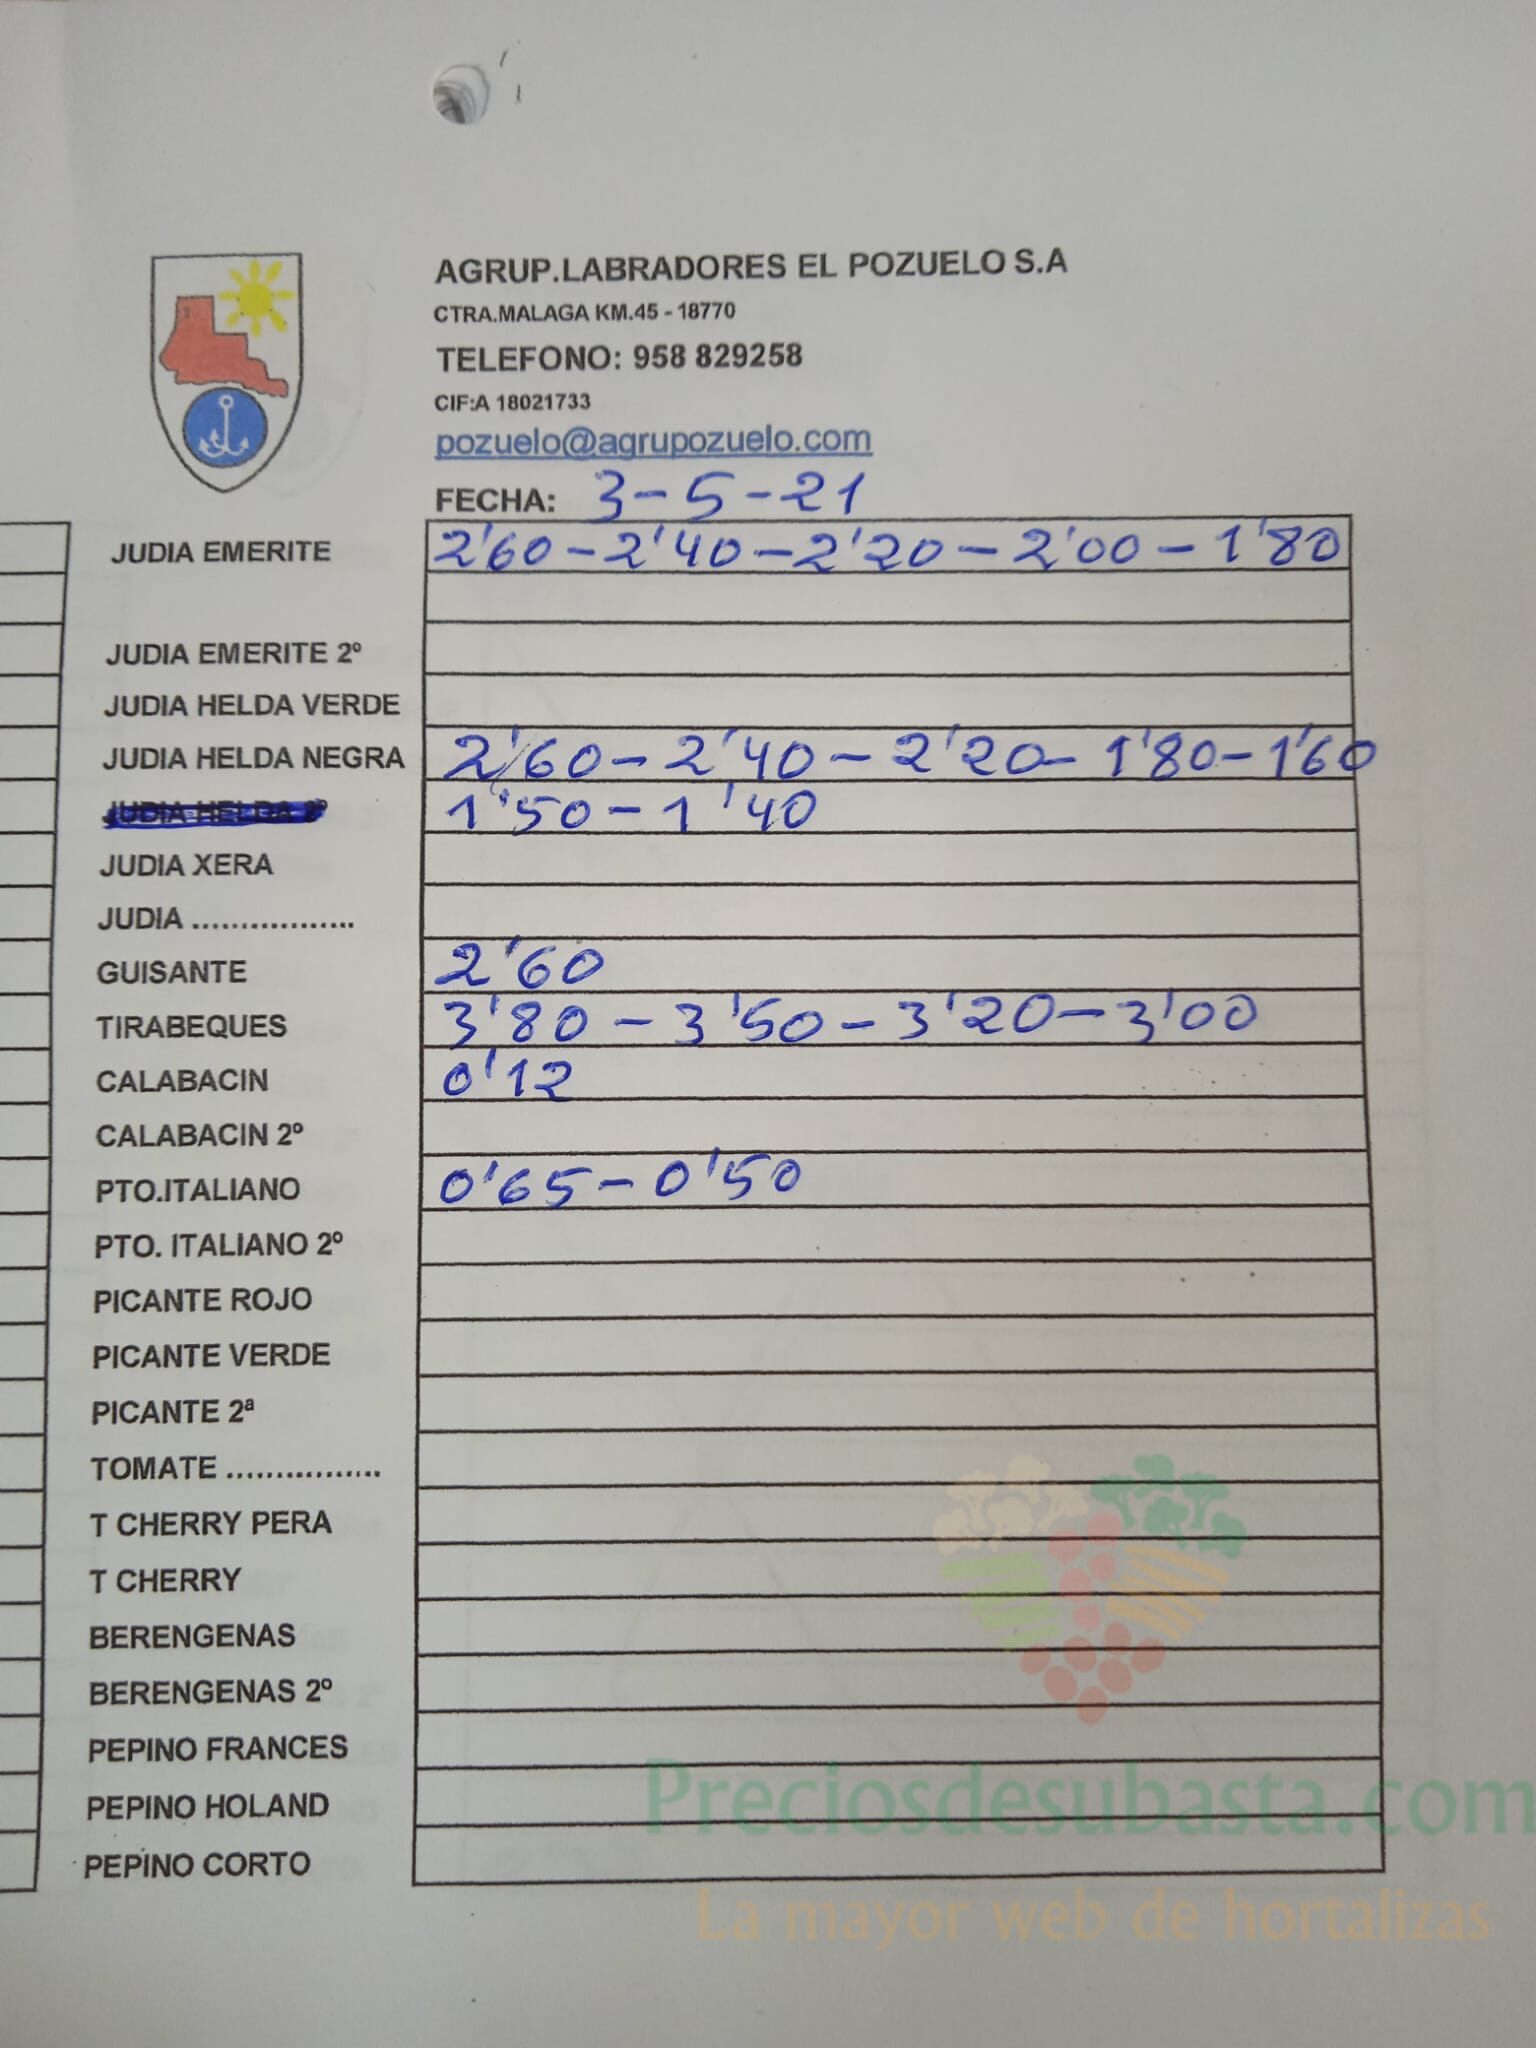 AGRUP.LABRADORES EL POZUELO S.A
CTRA.MALAGA KM.45 - 18770
TELEFONO: 958 829258
CIF:A 18021733
pozuelo@agrupozuelo.com
FECHA: 3-5-21
JUDIA EMERITE 2'60-2'40-2'20-2'00-1'80
JUDIA EMERITE 2º
JUDIA HELDA VERDE
JUDIA HELDA NEGRA 2'60-2'40-2'20-1'80-1'60
JUDIA HELDA 2º 1'50-1'40
JUDIA XERA
JUDIA .................
GUISANTE 2'60
TIRABEQUES 3'80-3'50-3'20-3'00
CALABACIN 0'12
CALABACIN 2º
PTO.ITALIANO 0'65-0'50
PTO. ITALIANO 2º
PICANTE ROJO
PICANTE VERDE
PICANTE 2ª
TOMATE ................
T CHERRY PERA
T CHERRY
BERENGENAS
BERENGENAS 2º
PEPINO FRANCES
PEPINO HOLAND
PEPINO CORTO
Preciosdesubasta.com
La mayor web de hortalizas